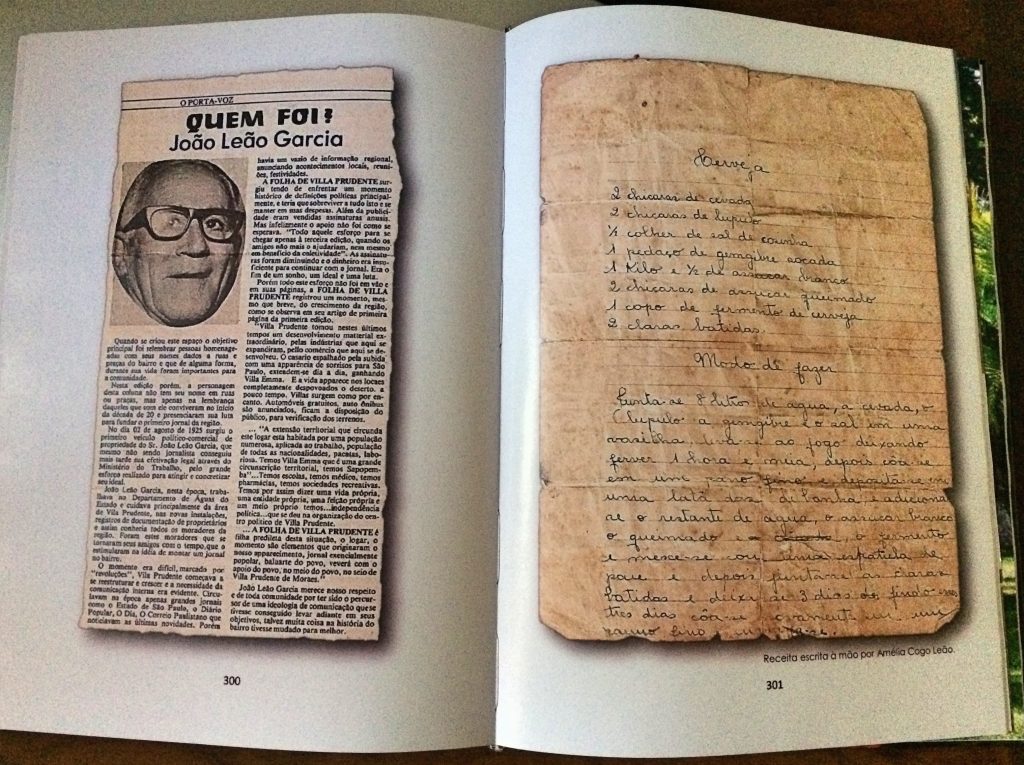 O PORTA-VOZ
QUEM FOI?
João Leão Garcia
Quando se criou este espaço o objetivo
principal foi relembrar pessoas homenagea-
das com seus nomes dados a ruas e
praças do bairro e que de alguma forma,
durante sua vida foram importantes para
a comunidade.
Nesta edição porém, a personagem
desta coluna não tem seu nome em ruas
ou praças, mas apenas na lembrança
daqueles que com ele conviveram no início
da década de 20 e presenciaram sua luta
para fundar o primeiro jornal da região.
No dia 02 de agosto de 1925 surgiu o
primeiro veículo político-comercial de
propriedade do Sr. João Leão Garcia, que
mesmo não sendo jornalista conseguiu
mais tarde sua efetivação legal através do
Ministério do Trabalho, pelo grande
esforço realizado para atingir e concretizar
seu ideal.
João Leão Garcia, nesta época, traba-
lhava no Departamento de Águas do
Estado e cuidava principalmente da área
de Vila Prudente, nas novas instalações,
registros de documentação de proprietários
e assim conhecia todos os moradores da
região. Foram estes moradores que se
tornaram seus amigos com o tempo, que o
estimularam na idéia de montar um jornal
no bairro.
O momento era difícil, marcado por
"revoluções", Vila Prudente começava a
se reestruturar e crescer e a necessidade da
comunicação interna era evidente. Circu-
lavam na época apenas grandes jornais
como o Estado de São Paulo, o Diário
Popular, O Dia, O Correio Paulistano que
noticiavam as últimas novidades. Porém
havia um vazio de informação regional,
anunciando acontecimentos locais, reuni-
ões, festividades.
A FOLHA DE VILLA PRUDENTE sur-
giu tendo de enfrentar um momento
histórico de definições políticas principal-
mente, e teria que sobreviver a tudo isto e se
manter em suas despesas. Além da publici-
dade eram vendidas assinaturas anuais.
Mas infelizmente o apoio não foi como se
esperava. "Todo aquele esforço para se
chegar apenas à terceira edição, quando os
amigos não mais o ajudariam, nem mesmo
em benefício da coletividade". As assinatu-
ras foram diminuindo e o dinheiro era insu-
ficiente para continuar com o jornal. Era o
fim de um sonho, um ideal e uma luta.
Porém todo este esforço não foi em vão e
em suas páginas, a FOLHA DE VILLA
PRUDENTE registrou um momento, mes-
mo que breve, do crescimento da região,
como se observa em seu artigo de primeira
página da primeira edição.
"Villa Prudente tomou nestes últimos
tempos um desenvolvimento matterial ex-
traordinário, pelas indústrias que aqui se
expandiram, pello comércio que aqui se de-
senvolveu. O casario espalhado pela subida
com uma apparência de sorrisos para São
Paulo, extendem-se dia a dia, ganhando
Villa Emma. E a vida apparece nos locaes
completamente despovoados e deserto, a
pouco tempo. Villas surgem como por en-
canto. Automóveis gratuitos, auto ônibus
são anunciados, ficam a disposição do
público, para verificação dos terrenos.
... "A extensão territorial que circunda
este logar esta habitada por uma população
numerosa, aplicada ao trabalho, população
de todas as nacionalidades, pacatas, labo-
riosa. Temos Villa Emma que é uma grande
circunscrição territorial, temos Sapopem-
ba"...Temos escolas, temos médico, temos
pharmácias, temos sociedades recreativas.
Temos por assim dizer uma vida própria,
uma entidade própria, uma feição própria e
um meio próprio temos...independência
política...que se deu na organização do cen-
tro político de Villa Prudente.
... A FOLHA DE VILLA PRUDENTE é
filha predileta desta situação, o logar, o
momento são elementos que originaram o
nosso apparecimento, jornal exencialmente
popular, baluarte do povo, veverá com o
apoio do povo, no meio do povo, no seio de
Villa Prudente de Moraes."
João Leão Garcia merece nosso respeito
e de toda comunidade por ter sido o percur-
sor de uma ideologia de comunicação que se
tivesse conseguido levar adiante em seus
objetivos, talvez muita coisa na história do
bairro tivesse mudado para melhor.
300
Cerveja
2 chicaras de cevada
2 chicaras de lupulo
½ colher de sal de cosinha
1 pedaço de gengibre socada
1 Kilo e ½ de assucar branco
2 chicaras de assucar queimado
1 copo de fermento de cerveja
2 claras batidas.
Modo de fazer
Junta-se 8 litros de agua, a cevada, o
lupulo a gengibre e o sal em uma
vasilha leva-se ao fogo deixando
ferver 1 hora e meia, depois côa-se
em um pano fino e deposita-se em
uma lata de banha, e adiciona-
se o restante de agua, o assucar branco
o queimado e o fermento
e mexe-se com uma espatula de
pau e depois junta-se as claras
batidas e deixa-se 3 dias ao findo esses
tres dias côa-se novamente em um
panno fino
Receita escrita à mão por Amélia Cogo Leão.
301